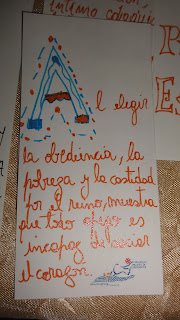 intimo
Al elegir
la obediencia, la
pobreza y la castidad
por el reino, muestra
que todo apego es
incapaz de saciar
el corazón.